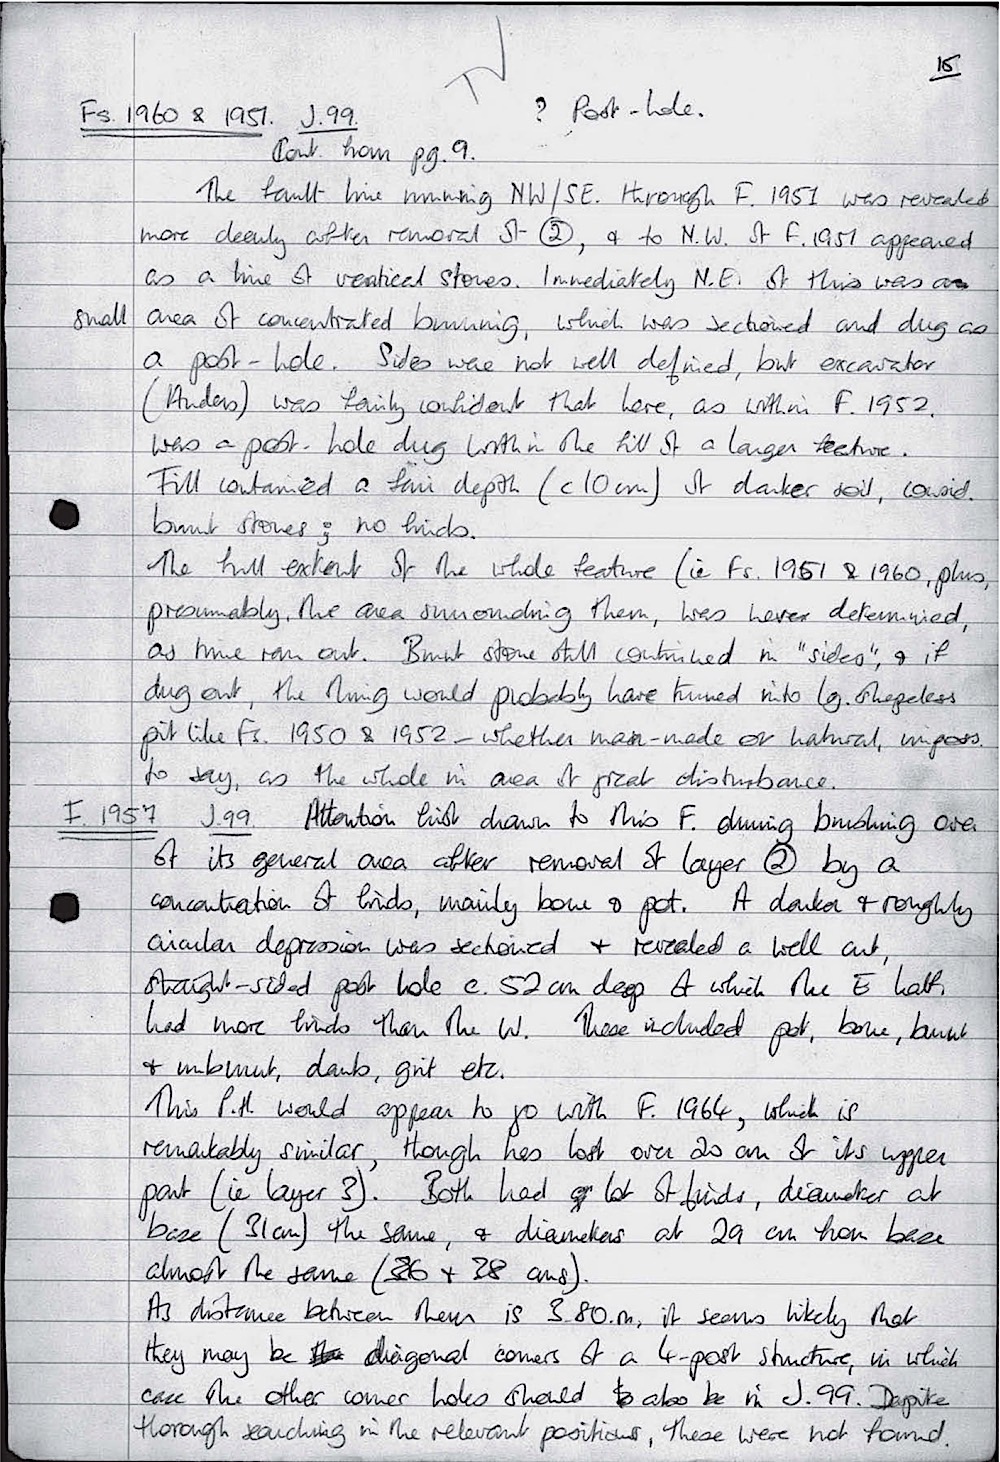 15
Fs. 1960 & 1951. J.99. ? Post-hole.
Cont. from pg. 9.
The fault line running NW/SE. through F. 1951 was revealed
more clearly after removal of ②, & to N.W. of F.1951 appeared
as a line of vertical stones. Immediately N.E. of this was a
small area of concentrated burning, which was sectioned and dug as
a post-hole. Sides were not well defined, but excavator
(Anders) was fairly confident that here, as within F. 1952,
was a post-hole dug within the fill of a larger feature.
Fill contained a fair depth (c10cm) of darker soil, consid.
burnt stones; no finds.
The full extent of the whole feature (ie Fs. 1951 & 1960, plus,
presumably, the area surrounding them, was never determined,
as time ran out. Burnt stone still continued in "sides", & if
dug out, the thing would probably have turned into lg. shapeless
pit like Fs. 1950 & 1952 – whether man-made or natural, imposs.
to say, as the whole in area of great disturbance.
F. 1957 J.99 Attention first drawn to this F. during brushing over
of its general area after removal of layer ② by a
concentration of finds, mainly bone & pot. A darker & roughly
circular depression was sectioned & revealed a well cut,
straight-sided post hole c. 52cm deep of which the E half,
had more finds than the W. These included pot, bone, burnt
& unburnt, daub, grit etc.
This P.H. would appear to go with F. 1964, which is
remarkably similar, though has lost over 20 cm of its upper
part (ie layer 3). Both had a lot of finds, diameter at
base (31cm) the same, & diameters at 29 cm from base
almost the same (36 & 38 cms).
As distance between them is 3.80.m, it seems likely that
they may be diagonal corners of a 4-post structure, in which
case the other corner holes should also be in J.99. Despite
thorough searching in the relevant positions, these were not found.